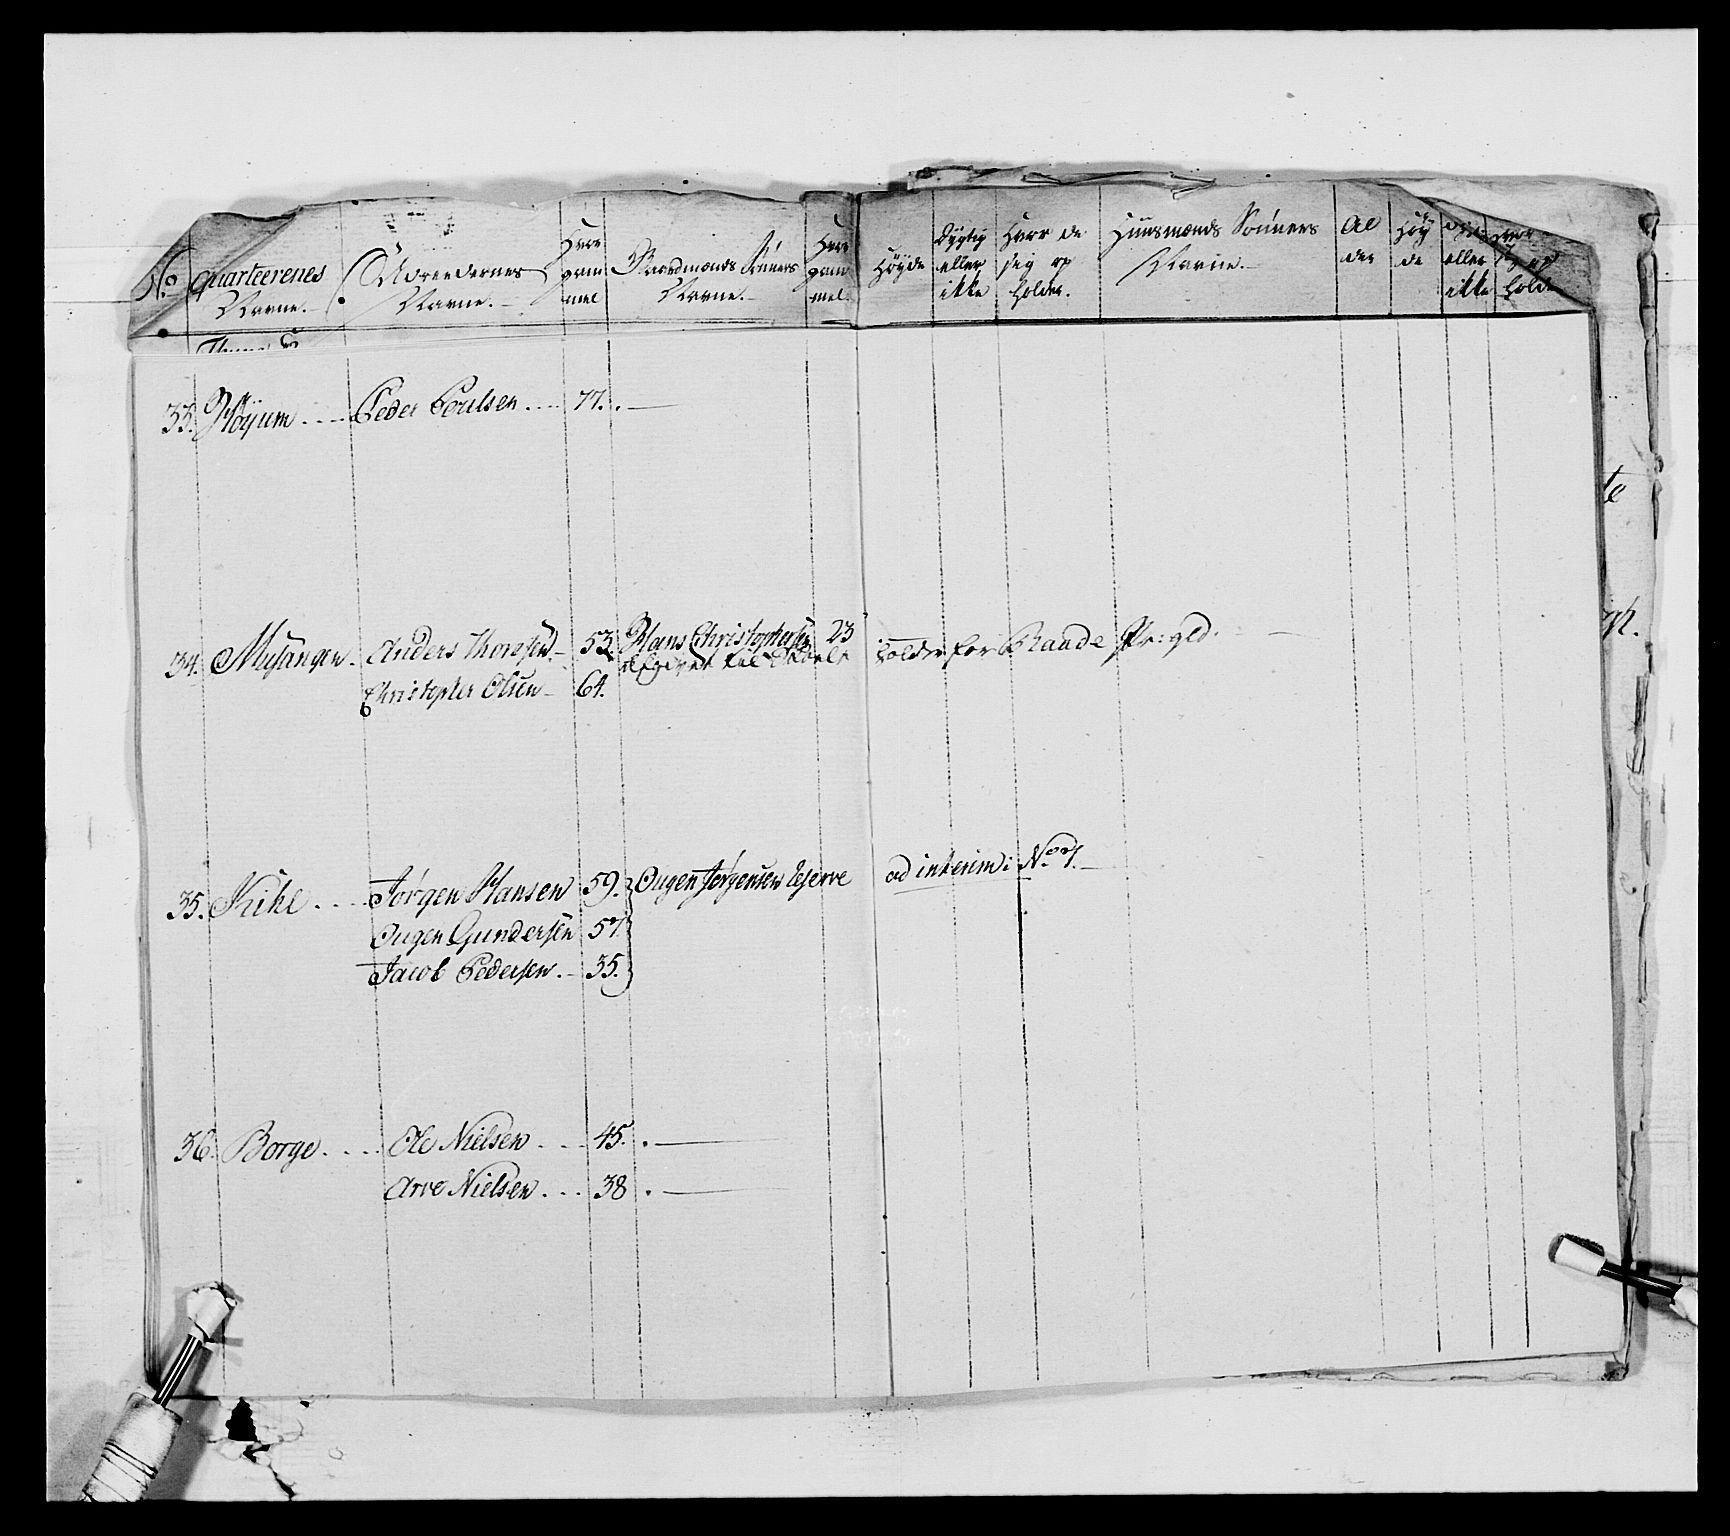 No. Quarteerenes Navne. Opreedernes Navne. Hvor gam mel Gaardmænds Sønners Navne. Hvor gam mel. Høyde Dygtig eller ikke Hvor de sig op holder. Huusmænds Sønners Navne. Al der Høy de eller ikke
33. Høyum Peder Poulsen 77.
34. Mysangen. Anders Thoresen 53. Hans Christophersen 23
Christopher Olsen 64.
35. Kihl Jørgen Hansen 59. Ougen Jørgensen reserve ad interim i No. 7.
Ougen Gundersen 57
Jacob Pedersen. 35.
36. Borge Ole Nielsen 45.
Arve Nielsen 38